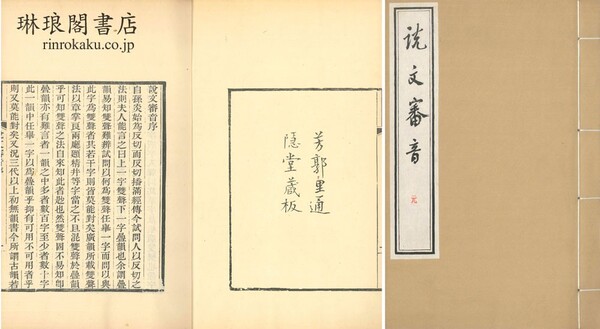 琳琅閣書店
rinrokaku.co.jp
說文審音序
自孫炎始為反切而反切播滿經傳今試問人以反切之
法則夫人能言之曰上一字雙聲下一字疊韻也余謂疊
韻易知雙聲難辨試問以何為雙聲任舉一字而問以與
此字為雙聲者其若干字則皆莫能對矣廣韻所載雙聲
法以章掌良兩廳頲精井等字當之不且混雙聲於疊韻
乎可知雙聲之法自來知此者尟也然雙聲固不易知即
疊韻亦有難言者一韻之中多者數百字至少者數十字
此一韻中任舉一字以為疊韻乎抑有可用不可用者乎
則又莫能對矣又況三代以上初無韻書今所謂古韻若
芳郭里通
隱堂藏板
説文審音
元